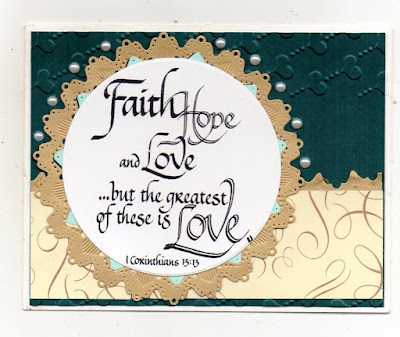 Faith Hope
and Love
...but the greatest
of these is Love"
1 Corinthians 13:13